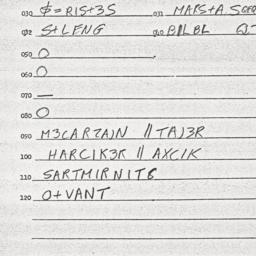 030 $ = RIST3S 031 MARSTA SGE
032 S+LENG 040 BILBL Q-
050 O
060 O
070 —
080 O
090 M3CARZAJN // TAJ3R
100 HARCIK3R // AXCIK
110 SARTMIRNIT8
120 O+VANT